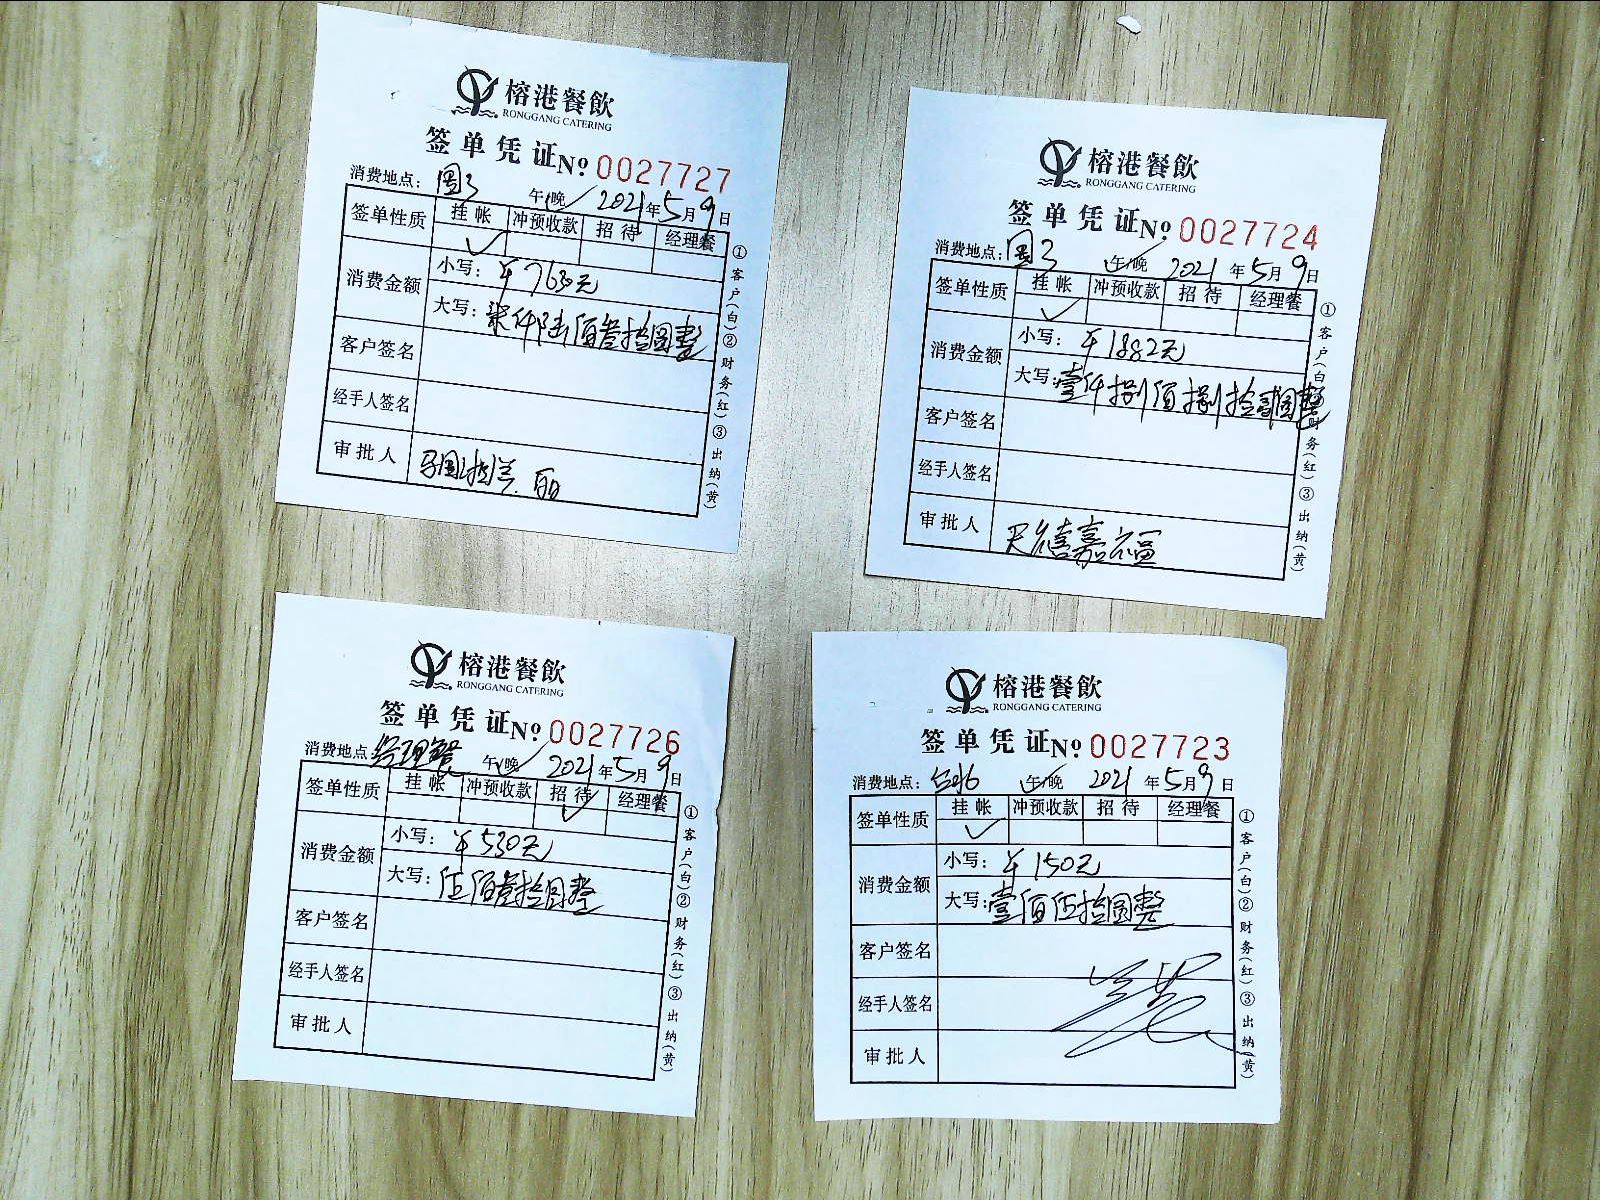 榕港餐飲
RONGGANG CATERING
签单凭证 Nº 0027727
消费地点： 午/晚 2021年5月9日
签单性质 挂帐 冲预收款 招待 经理餐
消费金额 小写：￥7630元
大写：柒仟陆佰叁拾圆整
客户签名
经手人签名
审批人
①客户(白)②财务(红)③出纳(黄)
榕港餐飲
RONGGANG CATERING
签单凭证 Nº 0027724
消费地点： 午/晚 2021年5月9日
签单性质 挂帐 冲预收款 招待 经理餐
消费金额 小写：￥1882元
大写：壹仟捌佰捌拾贰圆整
客户签名
经手人签名
审批人
①客户(白)②财务(红)③出纳(黄)
榕港餐飲
RONGGANG CATERING
签单凭证 Nº 0027726
消费地点：经理餐 午/晚 2021年5月9日
签单性质 挂帐 冲预收款 招待 经理餐
消费金额 小写：￥530元
大写：伍佰叁拾圆整
客户签名
经手人签名
审批人
①客户(白)②财务(红)③出纳(黄)
榕港餐飲
RONGGANG CATERING
签单凭证 Nº 0027723
消费地点： 午/晚 2021年5月9日
签单性质 挂帐 冲预收款 招待 经理餐
消费金额 小写：￥150元
大写：壹佰伍拾圆整
客户签名
经手人签名
审批人
①客户(白)②财务(红)③出纳(黄)